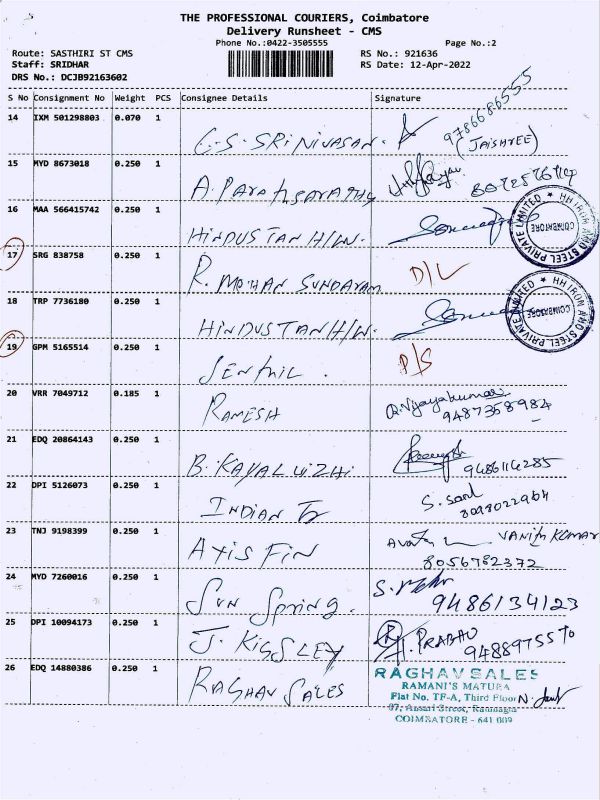 THE PROFESSIONAL COURIERS, Coimbatore
Delivery Runsheet - CMS
Phone No.:0422-3505555 Page No.:2
Route: SASTHIRI ST CMS RS No.: 921636
Staff: SRIDHAR RS Date: 12-Apr-2022
DRS No.: DCJB92163602
S No Consignment No Weight PCS Consignee Details Signature
14 IXM 501298803 0.070 1 G.S. SRINIVASAN. 9786686555 (JAISHREE)
15 MYD 8673018 0.250 1 A. PARATHSARATHY
16 MAA 566415742 0.250 1 HINDUSTAN H/W.
HH IRON AND STEEL PRIVATE LIMITED ★ COIMBATORE
17 SRG 838758 0.250 1 R. MOHAN SUNDARAM D/L
18 TRP 7736180 0.250 1 HINDUSTAN H/W.
HH IRON AND STEEL PRIVATE LIMITED ★ COIMBATORE
19 GPM 5165514 0.250 1 SENTHIL . P/S
20 VRR 7049712 0.185 1 RAMESH R. Vijayakumar
9487358984
21 EDQ 20864143 0.250 1 B. KAYALVIZHI 9486114285
22 DPI 5126073 0.250 1 INDIAN
23 TNJ 9198399 0.250 1 AXIS FIN VANITH KUMAR
8056782372
24 MYD 7260016 0.250 1 SUN SPRING.
9486134123
25 DPI 10094173 0.250 1 J. KIGSLEY PRABHU
26 EDQ 14880386 0.250 1 RAGHAV SALES
RAGHAV SALES
RAMANI'S MATURA
Flat No. TF-A, Third Floor
COIMBATORE - 641 009